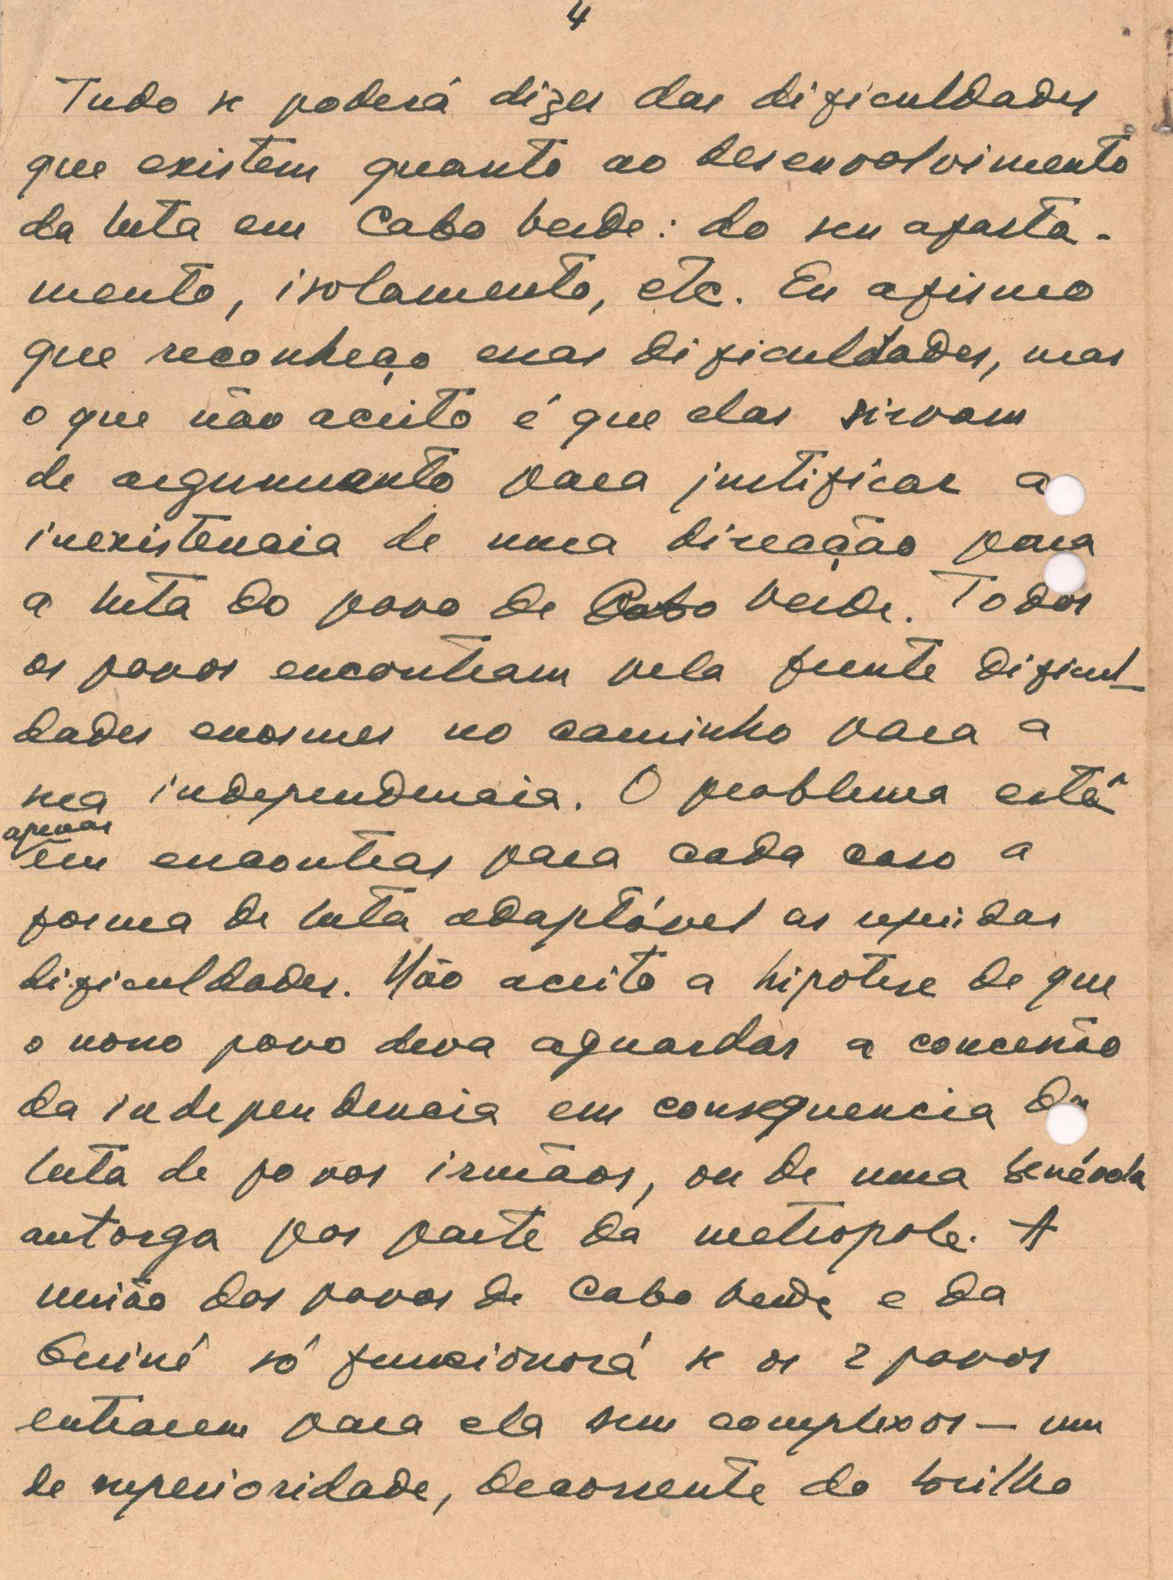 4
Tudo se poderá dizer das dificuldades
que existem quanto ao desenvolvimento
da luta em Cabo Verde: do seu afasta-
mento, isolamento, etc. Eu afirmo
que reconheço essas dificuldades, mas
o que não aceito é que elas sirvam
de argumento para justificar a
inexistencia de uma direcção para
a luta do povo de Cabo Verde. Todos
os povos encontram pela frente dificul-
dades enormes no caminho para a
sua independencia. O problema está
apenas
em encontrar para cada caso a
forma de luta adaptável as referidas
dificuldades. Não aceito a hipotese de que
o nosso povo deva aguardar a concessão
da independencia em consequencia da
luta de povos irmãos, ou de uma benévola
outorga por parte da metropole. A
união dos povos de Cabo Verde e da
Guiné só funcionará se os 2 povos
entrarem para ela sem complexos — um
de superioridade, decorrente do brilho